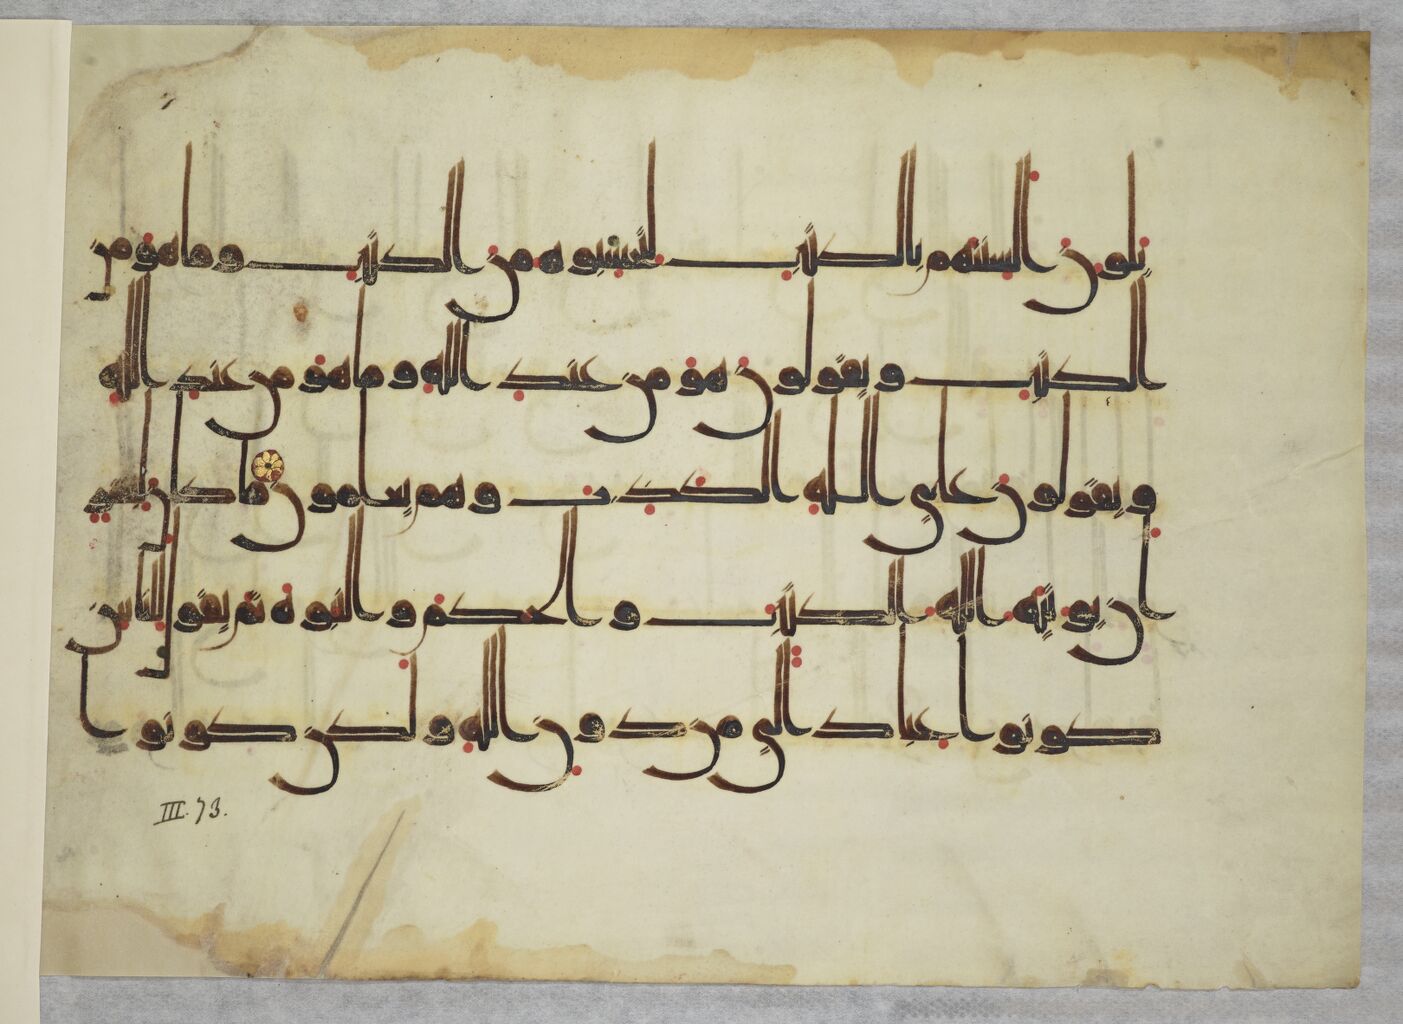 يلون السنتهم بالكتب لتحسبوه من الكتب وما هو من
الكتب ويقولون هو من عند الله وما هو من عند الله
ويقولون على الله الكذب وهم يعلمون ما كان لبشر
ان يوتيه الله الكتب والحكم والنبوه ثم يقول للناس
كونوا عبادا لي من دون الله ولكن كونوا
III. 73.